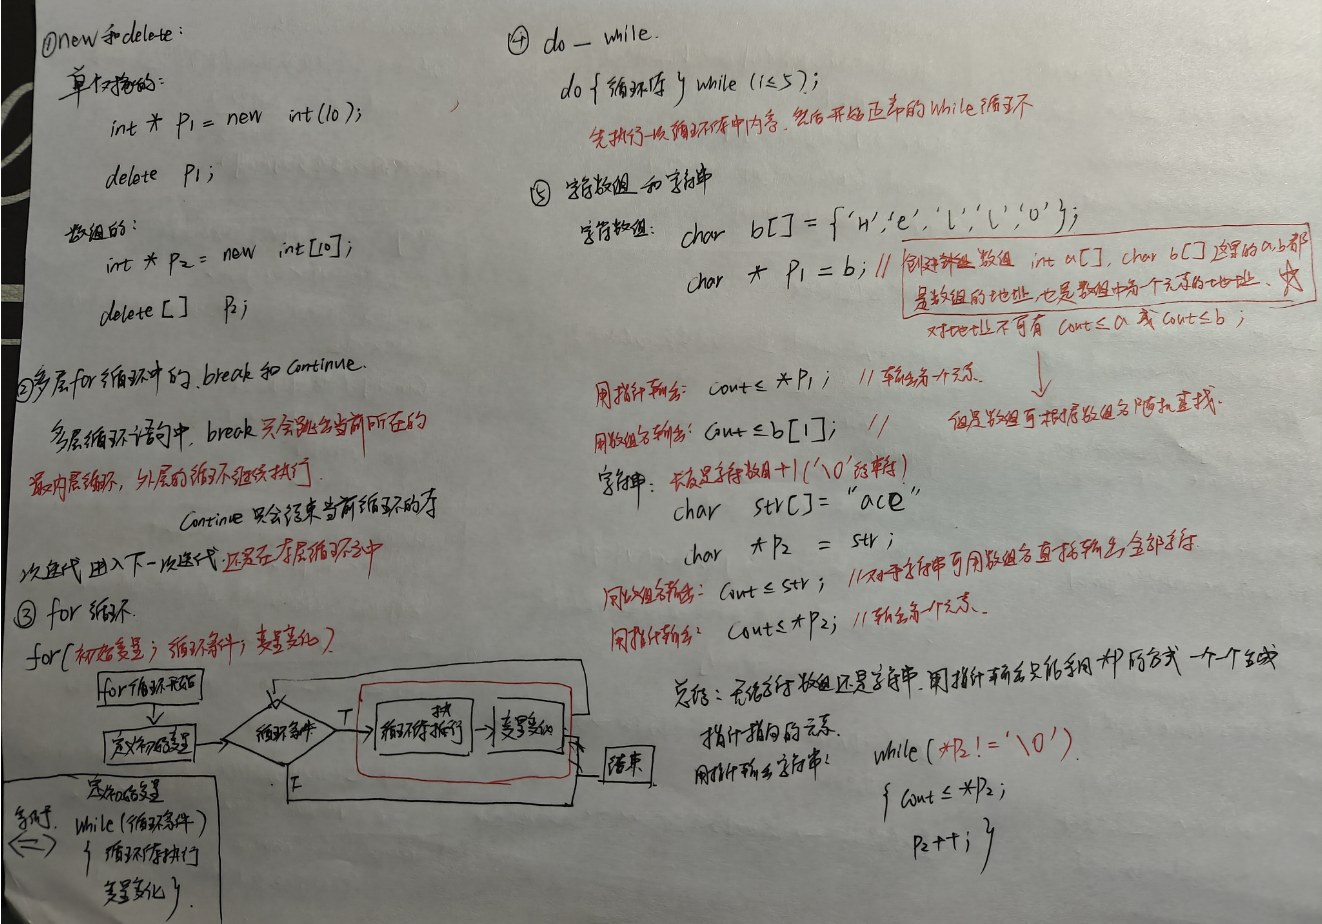 ①new和delete:
单个元素的:
int * p1 = new int(10);
delete p1;
数组的:
int * p2 = new int[10];
delete [] p2;
②多层for循环中的break和continue.
多层循环语句中, break只会跳出当前所在的
最内层循环, 外层的循环继续执行.
continue只会结束当前循环的本
次迭代 进入下一次迭代.还是在本层循环之中
③ for 循环.
for(初始变量; 循环条件; 变量变化)
for循环开始
定义初始变量
循环条件
T
循环体执行
变量变化
F
结束
等价于.
<=>
定义初始变量
while(循环条件)
{ 循环体执行
变量变化 }.
④ do — while.
do { 循环体 } while (i≤5);
先执行一次循环体中内容, 然后开始正常的while循环
⑤ 字符数组和字符串
字符数组: char b[] = {'H','e','l','l','o'};
char * p1 = b; // 创建 数组 int a[], char b[] 这里的a,b都
是数组的地址,也是数组中第一个元素的地址. ☆
对地址不可有 cout≤a 或 cout≤b ;
用指针输出: cout≤ *p1 ; // 输出第一个元素.
用数组名输出: cout ≤ b[1]; // 但是数组可根据数组名随机查找.
字符串: 长度是字符数目+1 ('\0'结束符)
char str[] = "ace"
char *p2 = str ;
用数组名输出: cout ≤ str ; //对于字符串可用数组名直接输出全部字符
用指针输出: cout≤ *p2; //输出第一个元素.
总结: 无论字符数组还是字符串, 用指针输出只能采用*P的方式 一个一个生成
指针指向的元素.
用指针输出字符串: while (*p2 != '\0')
{ cout ≤ *p2;
p2++; }